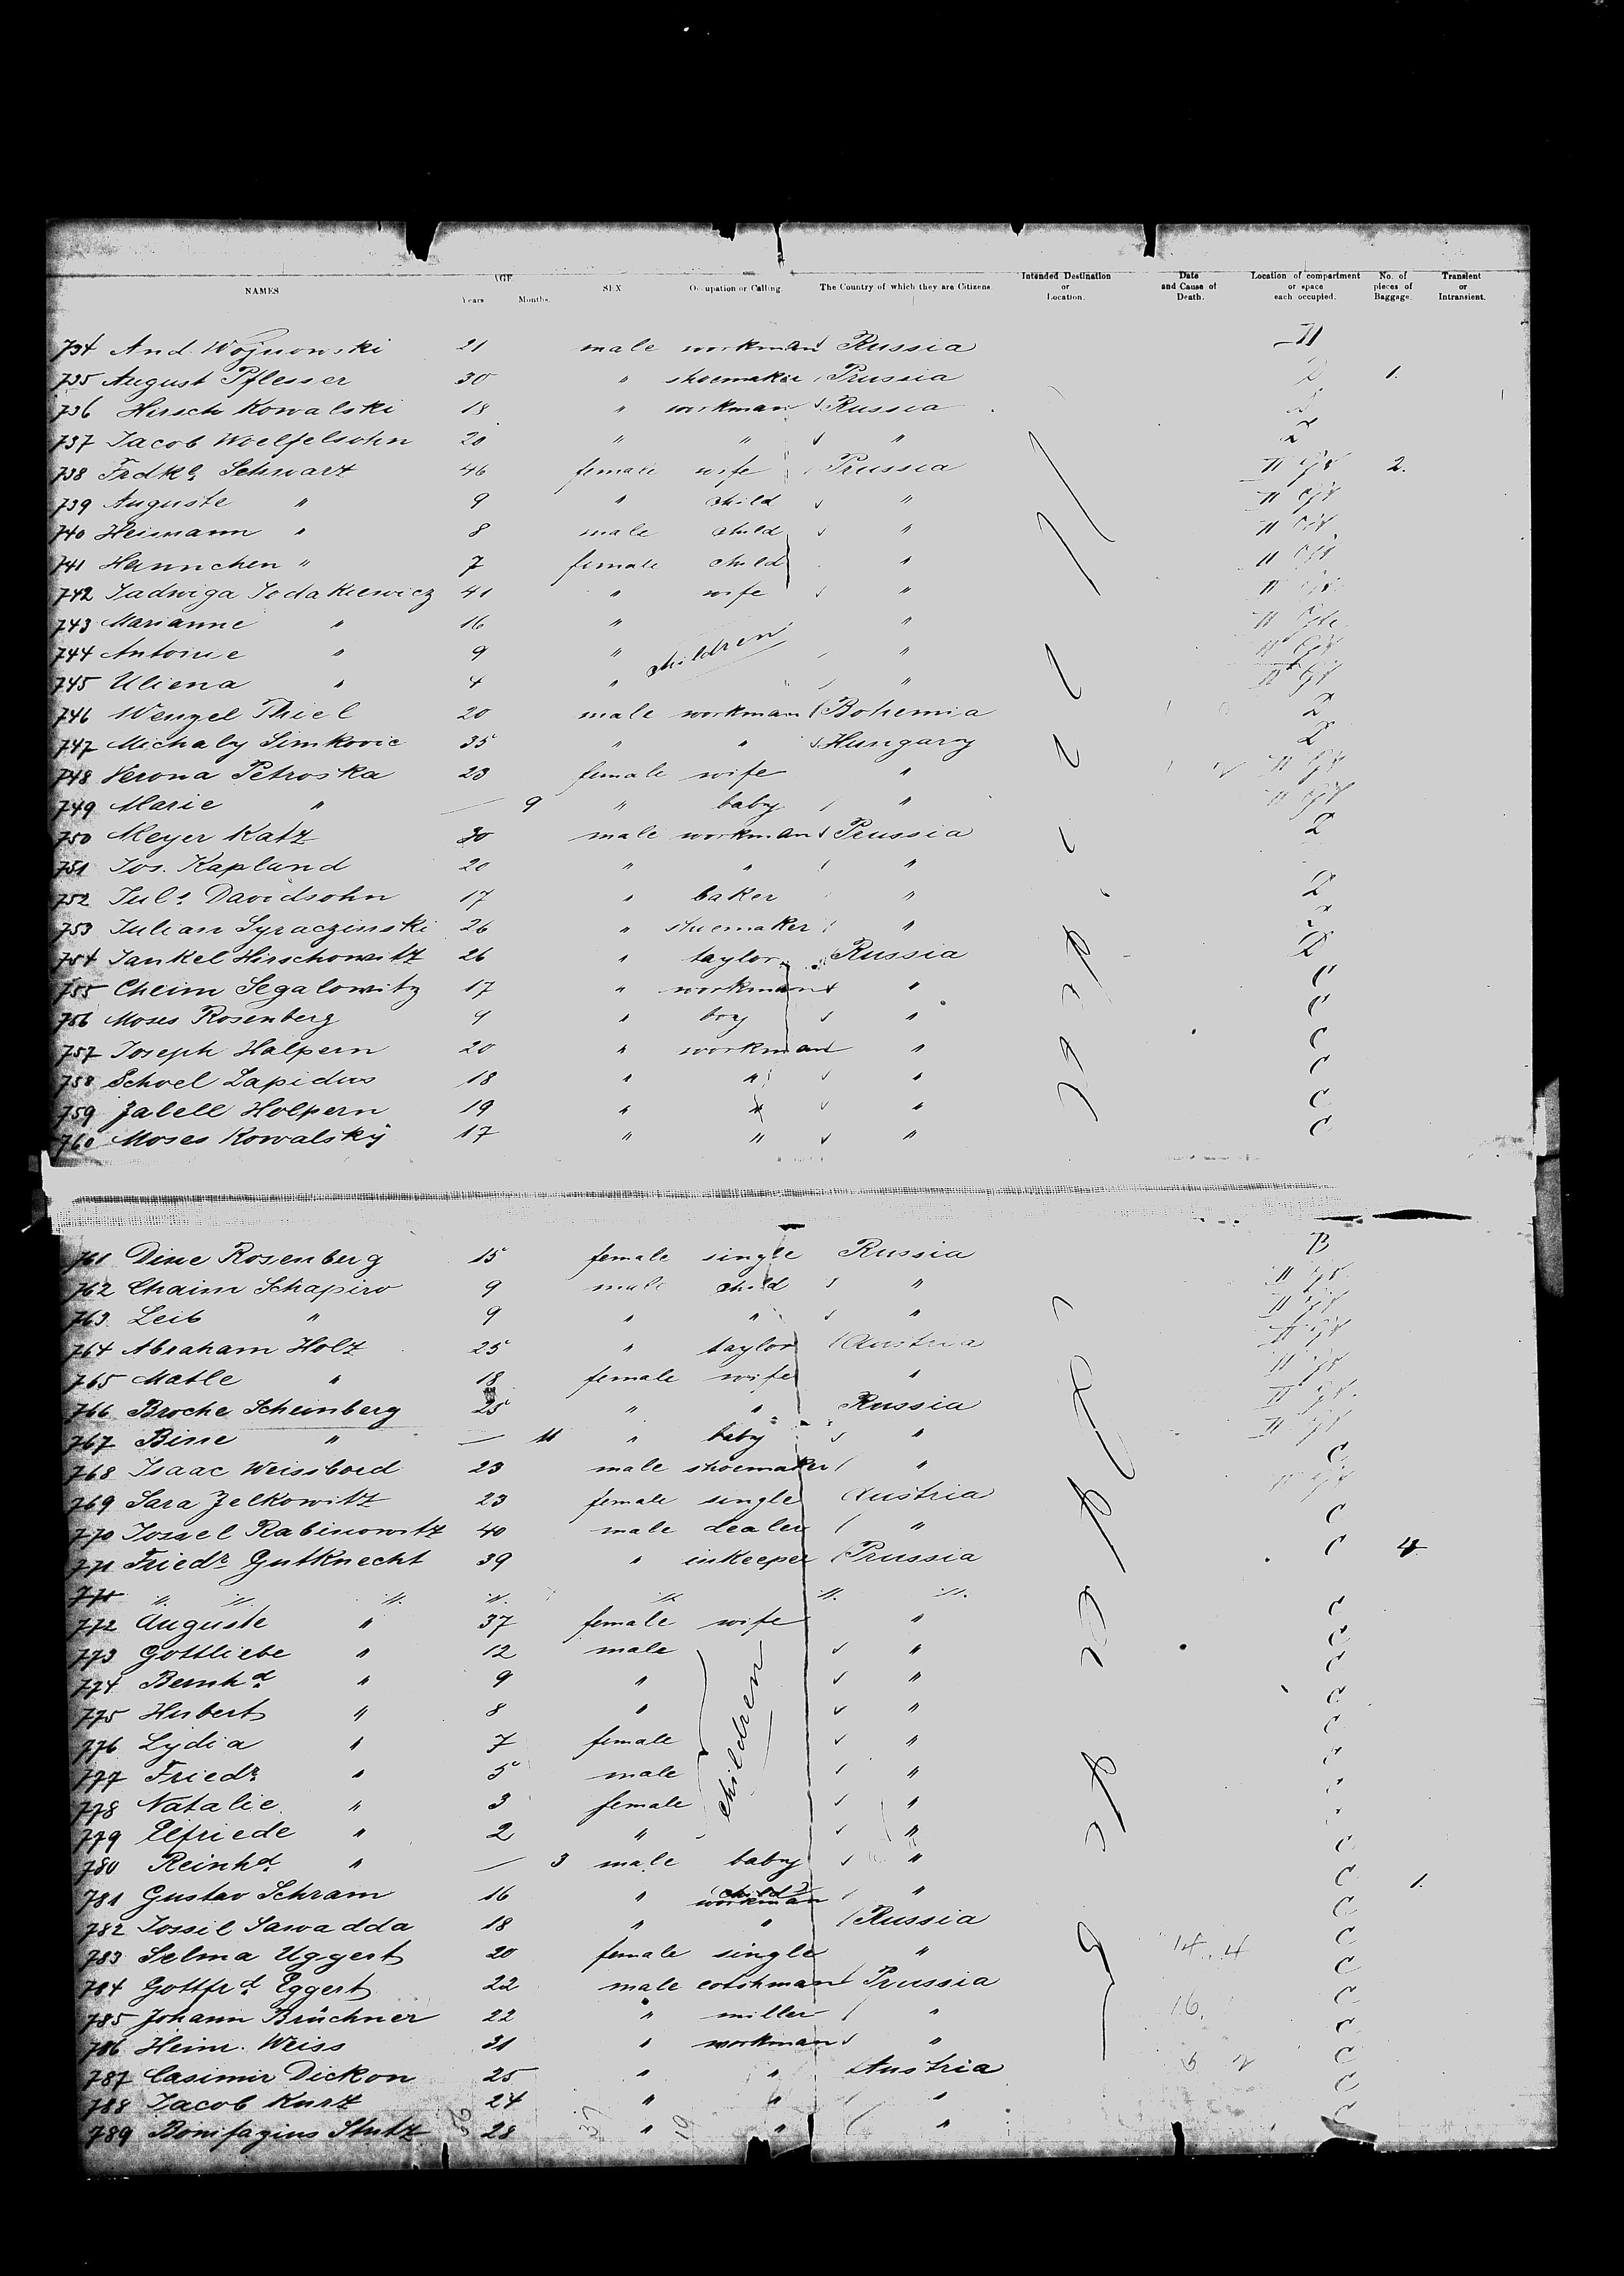 NAMES AGE Years Months. SEX Occupation or Calling. The Country of which they are Citizens. Intended Destination or Location. Date and Cause of Death. Location of compartment or space each occupied. No. of pieces of Baggage. Transient or Intransient.
734 And. Wojnowski 21 male workman Russia II
735 August Pflesser 30 " shoemaker Prussia 1.
736 Hirsch Kowalski 18 " workman Russia
737 Jacob Woelfelsohn 20 " " "
738 Frdke Schwarz 46 female wife Prussia II 2.
739 Auguste " 9 " child " II
740 Heimann " 8 male child " II
741 Hannchen " 7 female child " II
742 Jadwiga Jodakiewicz 41 " wife " II
743 Marianne " 16 " children " II
744 Antonie " 9 " " II
745 Uliena " 4 " " " II
746 Wenzel Thiel 20 male workman Bohemia 2
747 Michaly Simkovic 35 " " Hungary 2
748 Verona Petroska 23 female wife " II
749 Marie " — 9 " baby " II
750 Meyer Katz 30 male workman Prussia 2
751 Jos. Kaplund 20 " " "
752 Juls Davidsohn 17 " baker " 2
753 Julian Syraczinski 26 " shuemaker "
754 Jankel Hirschowitz 26 " taylor Russia 2
755 Cheim Segalowitz 17 " workman " C
756 Moses Rosenberg 9 " boy " C
757 Joseph Halpern 20 " workman " C
758 Schoel Lapidus 18 " " " C
759 Zalell Holpern 19 " " " C
760 Moses Kowalsky 17 " " " C
761 Dine Rosenberg 15 female single Russia B
762 Chaim Schapiro 9 male child " II
763 Leib " 9 " " " II
764 Abraham Holz 25 " taylor Austria II
765 Matle " 18 female wife " II
766 Broche Scheinberg 25 " " Russia II
767 Bine " — 11 " baby " II
768 Isaac Weissbord 23 male shoemaker " C
769 Sara Zelkowitz 23 female single Austria II
770 Jossel Rabinowitz 40 male dealer " C
771 Friedr Gutknecht 39 " inkeeper Prussia C 4
771 " " " " " " "
772 Auguste " 37 female wife " C
773 Gottliebe " 12 male children " C
774 Bernhd " 9 " " C
775 Hubert " 8 " " C
776 Lydia " 7 female " C
777 Friedr " 5 male " C
778 Natalie " 3 female "
779 Elfriede " 2 " "
780 Reinhd " — 3 male baby " C
781 Gustav Schram 16 " child workman " C 1.
782 Jossil Sawadda 18 " " Russia C
783 Selma Uggert 20 female single " 14. 4 C
784 Gottfrd Eggert 22 male cotshman Prussia C
785 Johann Brüchner 22 " miller " 16. C
786 Heinr. Weiss 31 " workman " C
787 Casimir Dickon 25 " " Austria C
788 Jacob Kurtz 24 " " " C
789 Bonifazius Stutz 28 " " "